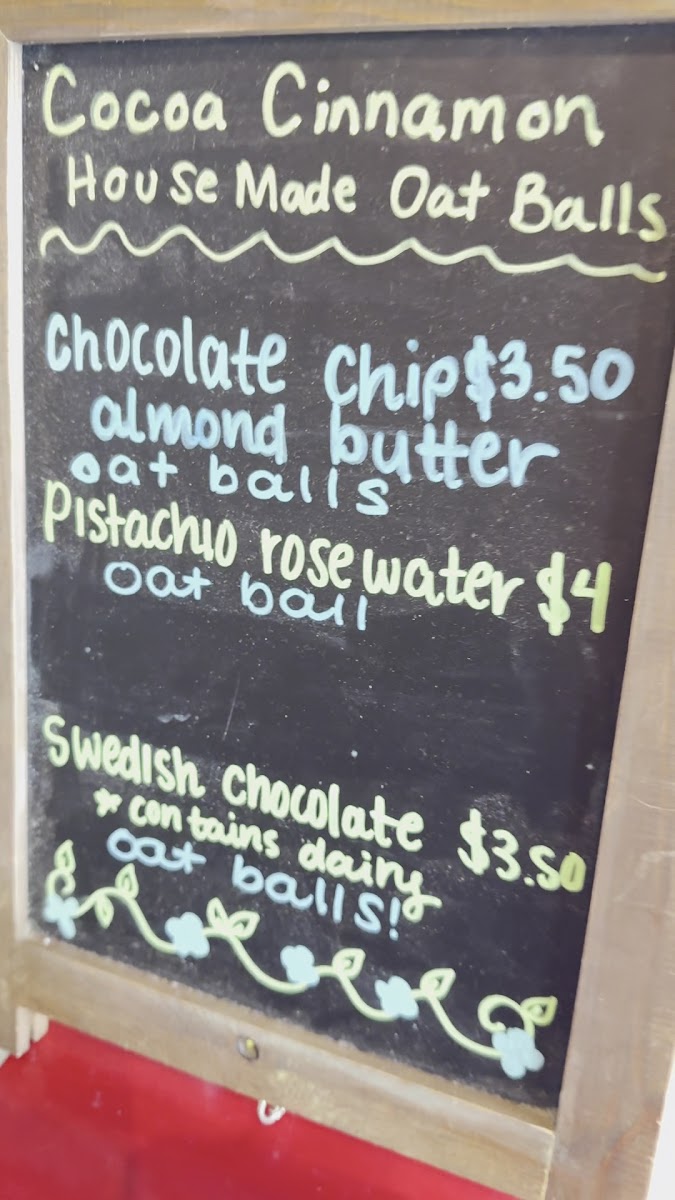 Cocoa Cinnamon
House Made Oat Balls
chocolate chip $3.50
almond butter
oat balls
Pistachio rose water $4
oat ball
Swedish chocolate $3.50
* contains dairy
oat balls!